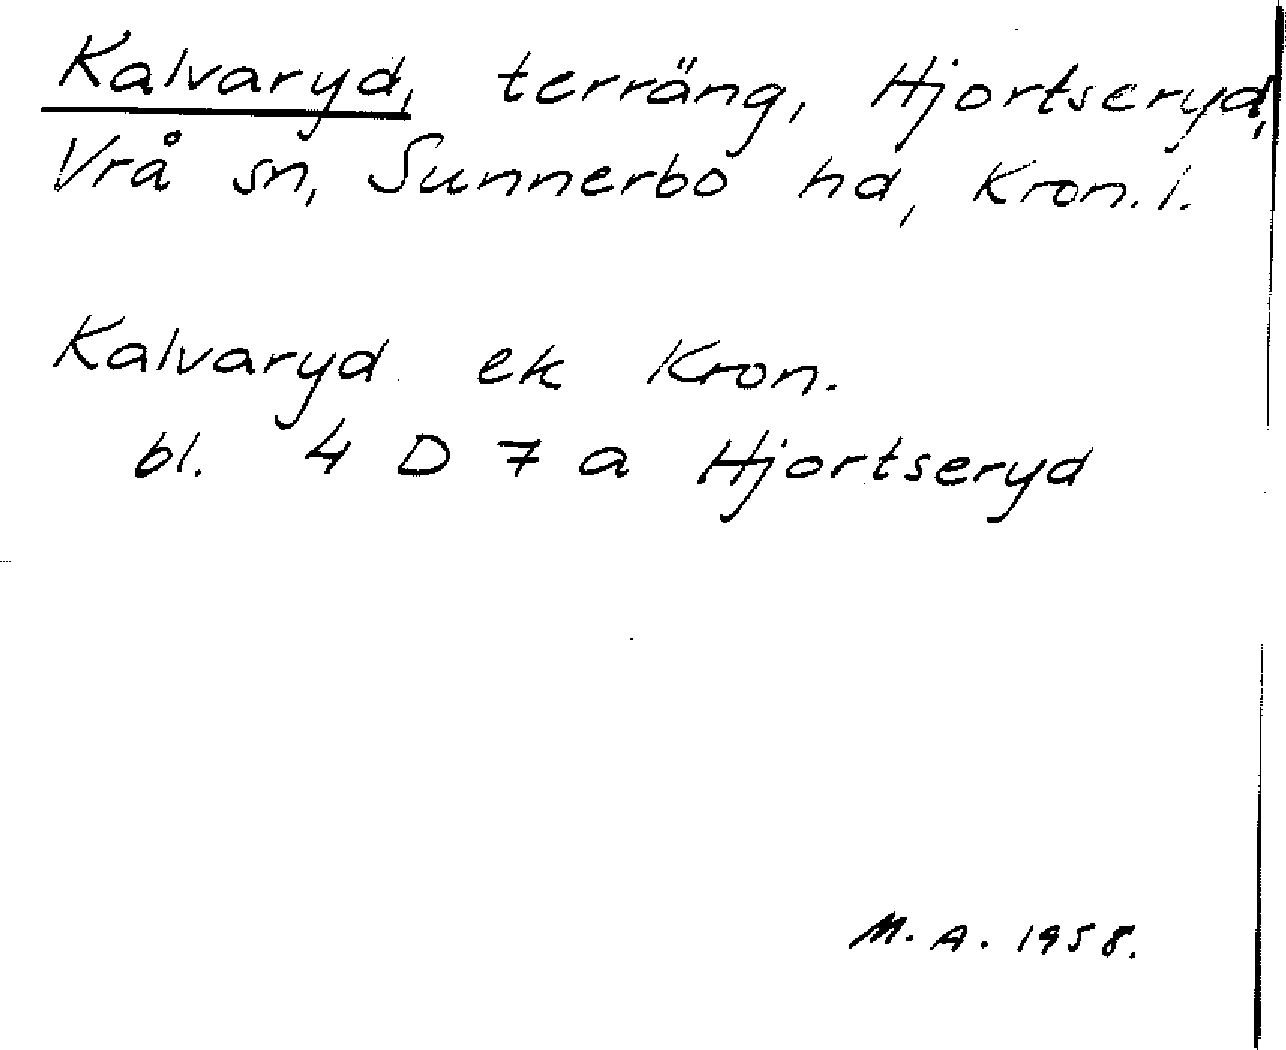 Kalvaryd, terräng, Hjortseryd,
Vrå sn, Sunnerbo hd, Kron. l.
Kalvaryd ek Kron.
bl. 4 D 7 a Hjortseryd
M. A. 1958.